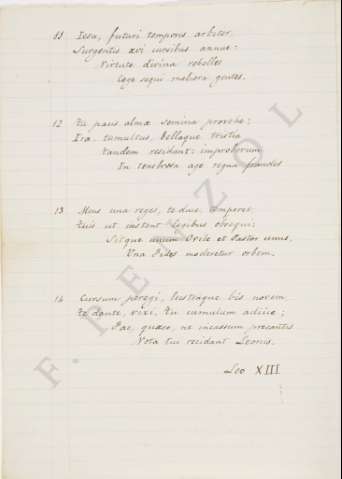 11 Iesu, futuri temporis arbiter,
Surgentis aevi cursibus annue:
Virtute divina rebelles
Coge sequi meliora gentes.
12 Tu pacis almae semina provehe;
Irae, tumultus, bellaque tristia
Tandem residant: improborum
In tenebrosa age regna fraudes
13 Mens una reges, te duce, temperet,
Tuis ut instent legibus obsequi:
Sitque unum Ovile et Pastor unus,
Una Fides moderetur orbem.
14 Cursum peregi, lustraque bis novem,
Te dante, vixi. Tu cumulum adiice;
Fac, quaeso, ne incassum precantis
Vota tui recidant Leonis.
Leo XIII
F. PENZOL